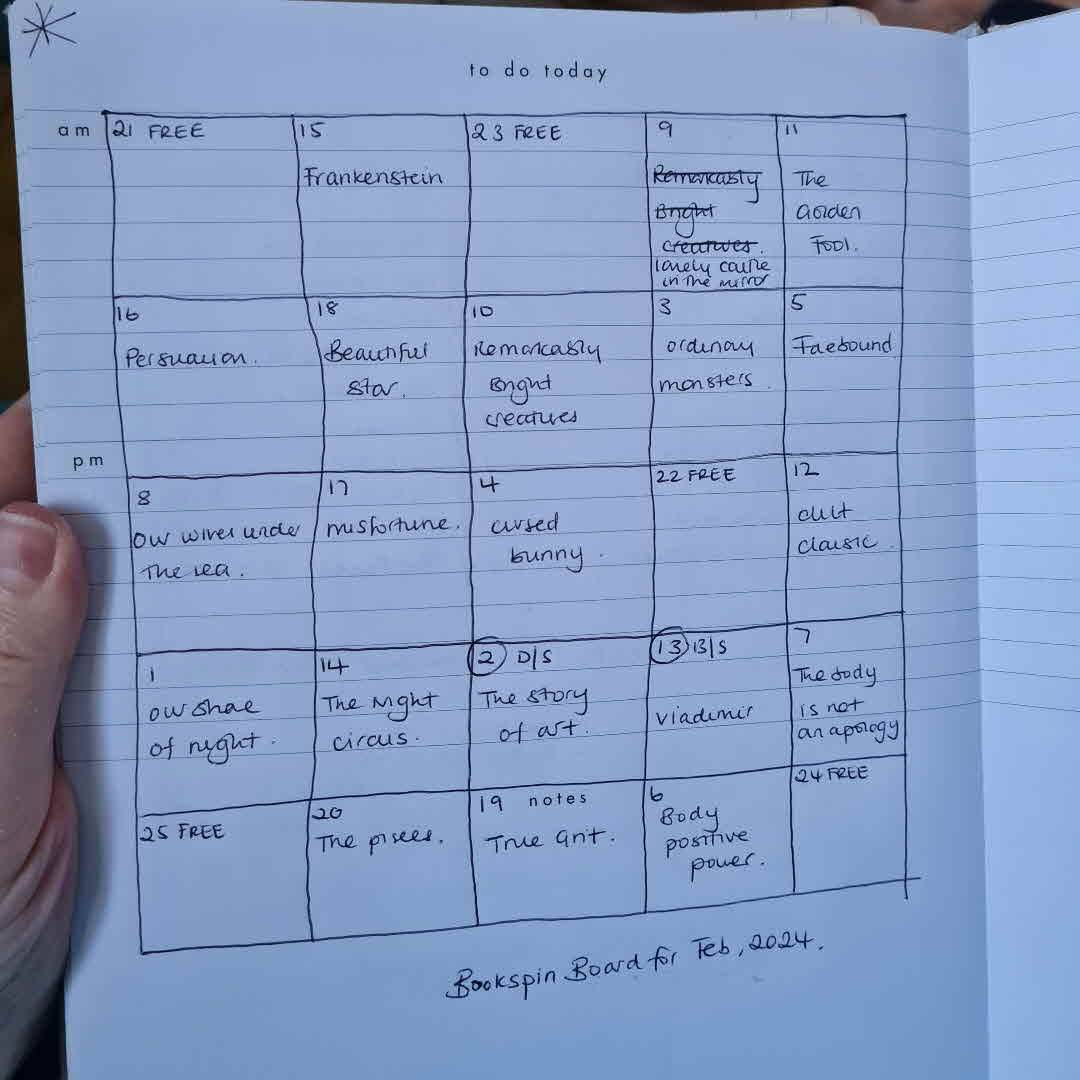 to do today
am
pm
21 FREE
15
Frankenstein
23 FREE
9
Remarkasly
Bright
creatures.
lonely castle
in the mirror
11
The
Golden
Fool.
16
Persuasion.
18
Beautiful
star.
10
Remarkasly
Bright
creatures
3
ordinary
monsters.
5
Faebound
8
Our wives under
The sea.
17
misfortune.
4
cursed
bunny.
22 FREE
12
cult
classic.
1
our share
of night.
14
The Night
circus.
2 D/S
The story
of art.
13 B/S
Vladimir
7
The body
is not
an apology
25 FREE
20
The pisces.
19 notes
True Grit.
6
Body
positive
power.
24 FREE
Bookspin Board for Feb, 2024.